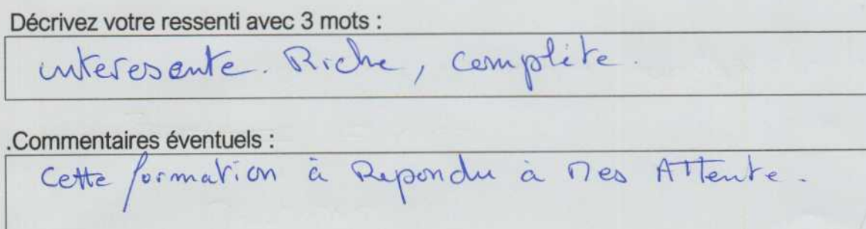 Décrivez votre ressenti avec 3 mots :
interesente. Riche, complète.
.Commentaires éventuels :
Cette formation à Repondu à Mes Attente.